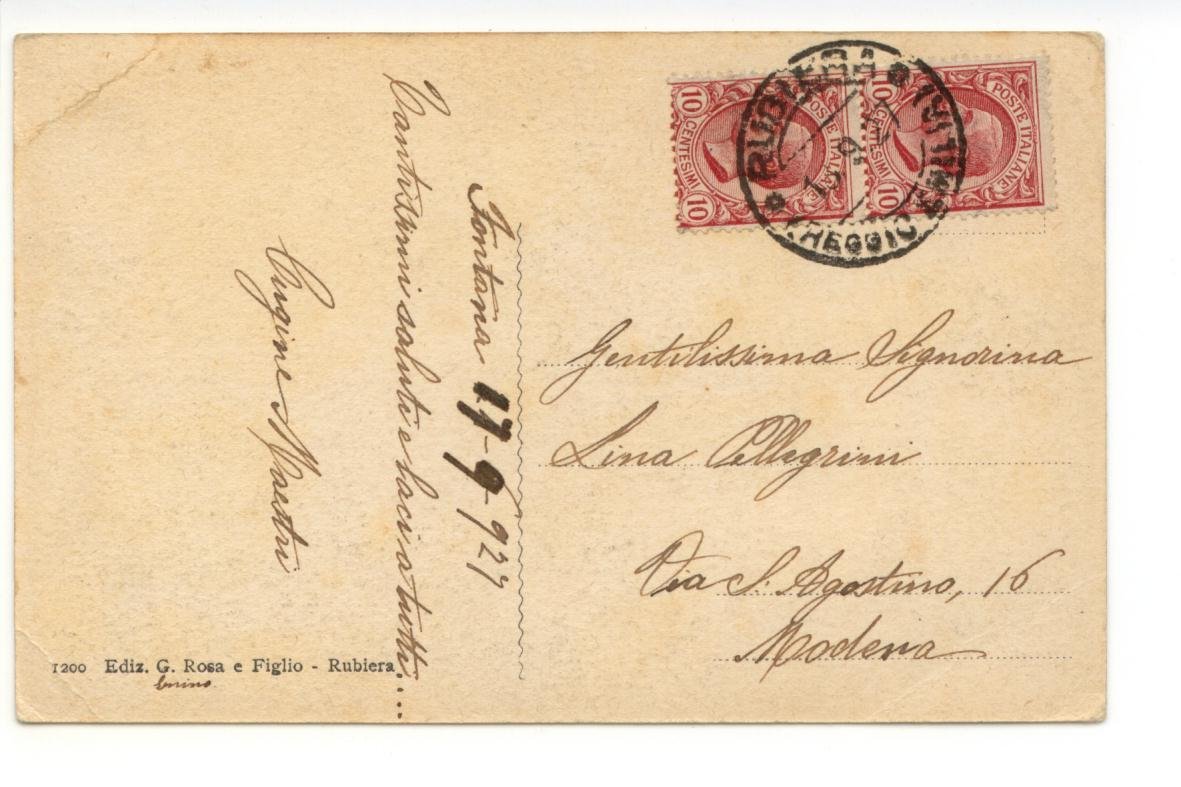 Fontana 17-9-927
Tantissimi saluti e baci a tutti....
Cugine Maestri
10 CENTESIMI 10
POSTE ITALIANE
10 CENTESIMI 10
POSTE ITALIANE
RUBIERA
REGGIO
Gentilissima Signorina
Lina Pellegrini
Via S. Agostino, 16
Modena
1200 Ediz. G. Rosa e Figlio - Rubiera